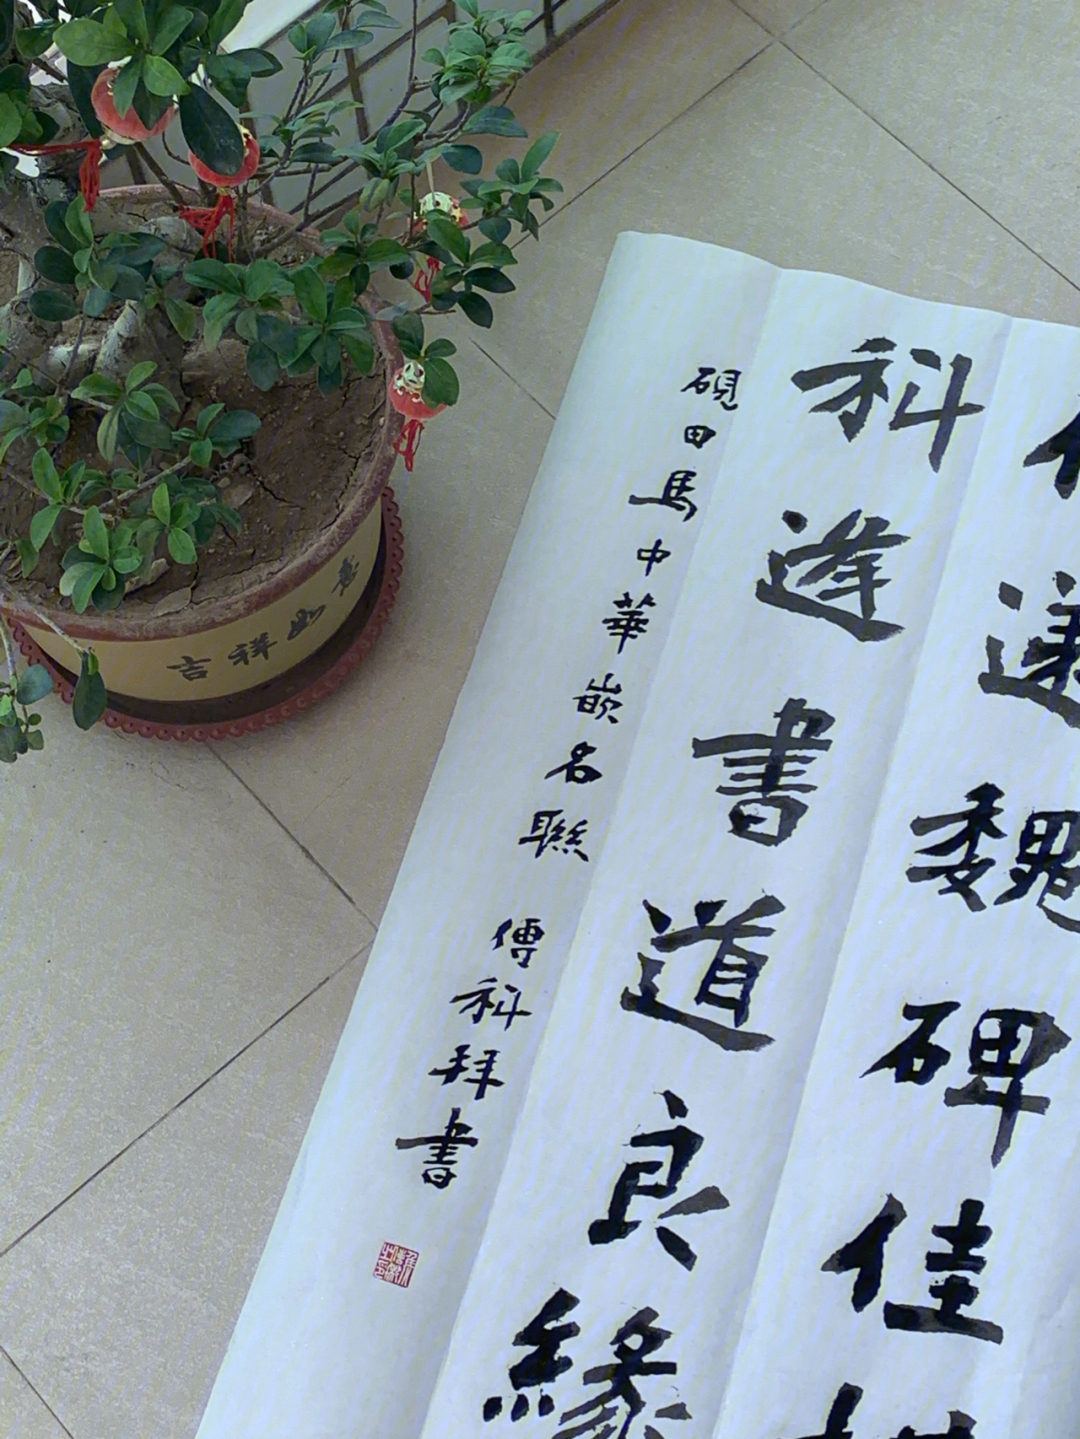 魏碑佳
科逢書道良緣
硯田馬中華嵌名聯 傅科拜書
吉祥如意